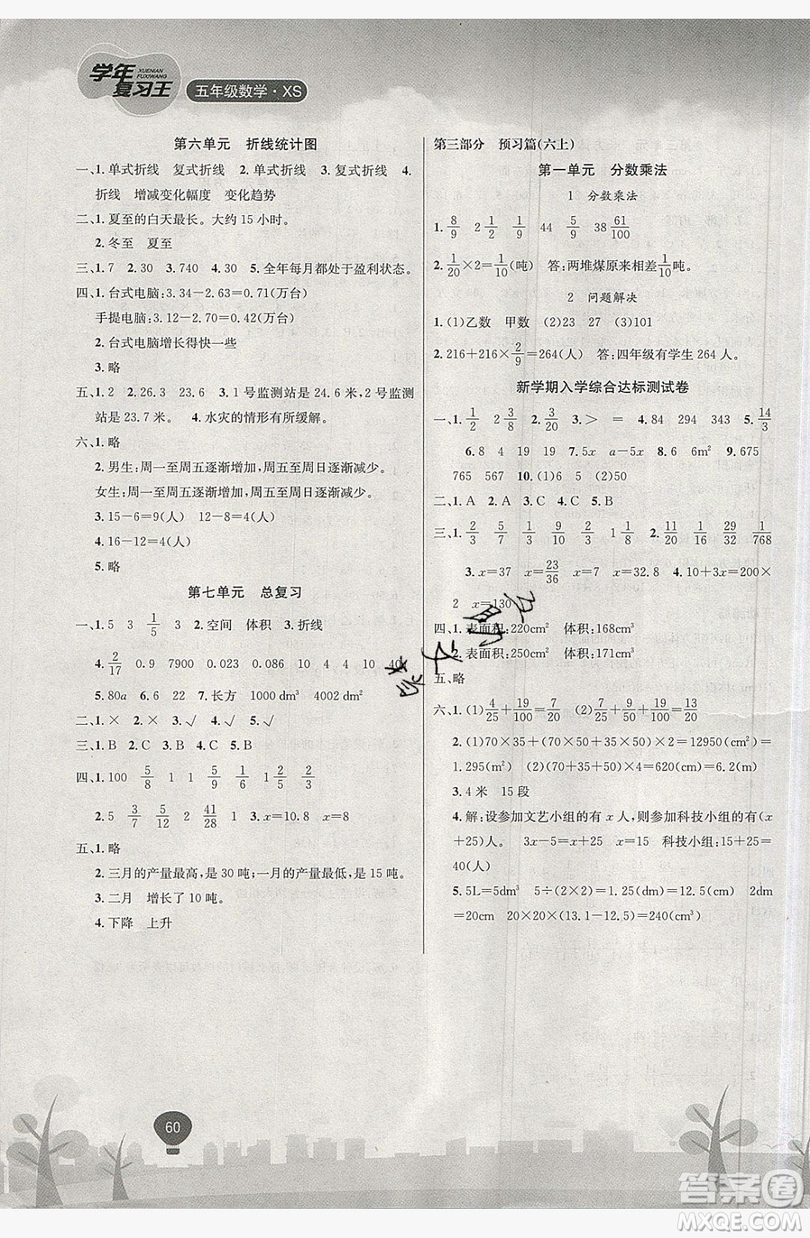 学年
XUENIAN
FUXIWANG
复习王
五年级数学·XS
第六单元 折线统计图
一、1.单式折线 复式折线 2.单式折线 3.复式折线 4.
折线 增减变化幅度 变化趋势
二、1.夏至的白天最长。大约15小时。
2.冬至 夏至
三、1.7 2.30 3.740 4.30 5.全年每月都处于盈利状态。
四、1.台式电脑:3.34-2.63=0.71(万台)
手提电脑:3.12-2.70=0.42(万台)
2.台式电脑增长得快一些
3.略
五、1.2 2.26.3 23.6 3.1号监测站是24.6米,2号监测
站是23.7米。 4.水灾的情形有所缓解。
六、1.略
2.男生:周一至周五逐渐增加,周五至周日逐渐减少。
女生:周一至周五逐渐增加,周五至周日逐渐减少。
3.15-6=9(人) 12-8=4(人)
4.16-12=4(人)
5.略
第七单元 总复习
一、1.5 3 1/5 3 2.空间 体积 3.折线
4.2/17 0.9 7900 0.023 0.086 10 4 10 40
5.80a 6.22 7.长方 1000dm³ 4002dm³
二、1.× 2.× 3.√ 4.√
三、1.B 2.C 3.C 4.C 5.B
四、1.100 5/8 1 1 5/6 2/3
2.5 3/7 5/12 2 41/28 1 3.x=10.8 x=8
五、1.略
2.三月的产量最高,是30吨;一月的产量最低,是15吨。
3.二月 增长了10吨。
4.下降 上升
第三部分 预习篇(六上)
第一单元 分数乘法
1 分数乘法
1.8/9 2 1/2 1/12 44 5/9 38 61/100
2.1/20×2=1/10(吨) 答:两堆煤原来相差1/10吨。
2 问题解决
1.(1)乙数 甲数 (2)23 27 (3)101
2.216+216×2/9=264(人) 答:四年级有学生264人。
新学期入学综合达标测试卷
一、1.1/2 2 3/8 2.3/20 3.> = 4.84 294 343 5.14/3
6.8 4 19 19 7.5x 4x 8.6m² 9.405
765 567 10.(1)6 (2)50
二、1.A 2.A 3.C 4.C 5.B
三、1.2/3 5/7 1/3 9/10 5/8 1 1/8 2.17/40 11/16 29/32 1/768
3.x=36 x=23/36 x=8 x=32.8 4.(x+200)×
2 x=130
四、1.表面积:220cm² 体积:168cm³
2.表面积:250cm² 体积:171cm³
五、略
六、1.(1)4/25+19/100=7/20 (2)7/25+19/100+9/50=13/20
2.(1)(70×35+(70+35)×50)×2=12950(cm²)=
1.295(m²) (2)(70×4+35×4+50×4)×2=1240(cm)
3.4米 15段
4.解:设参加文艺小组的有x人,则参加科技小组的有(x
+25)人。 3x=x+25×2 x=15 科技小组:15+25=
40(人)
5.5L=5dm³ 5÷(2×2)=1.25(dm)=12.5cm 2dm
=20cm 20×20×(13.1-12.5)=240(cm³)
60
答案卷
MXQE.COM